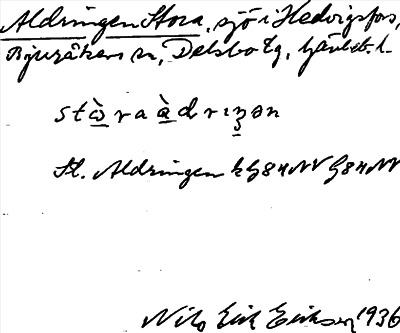 Aldringen Stora, sjö i Hedvigsfors,
Bjuråkers sn, Delsbo tg, Gävleb. l.
stὼraὰdriŋən
St. Aldringen
Nils Erik Eriksson 1936